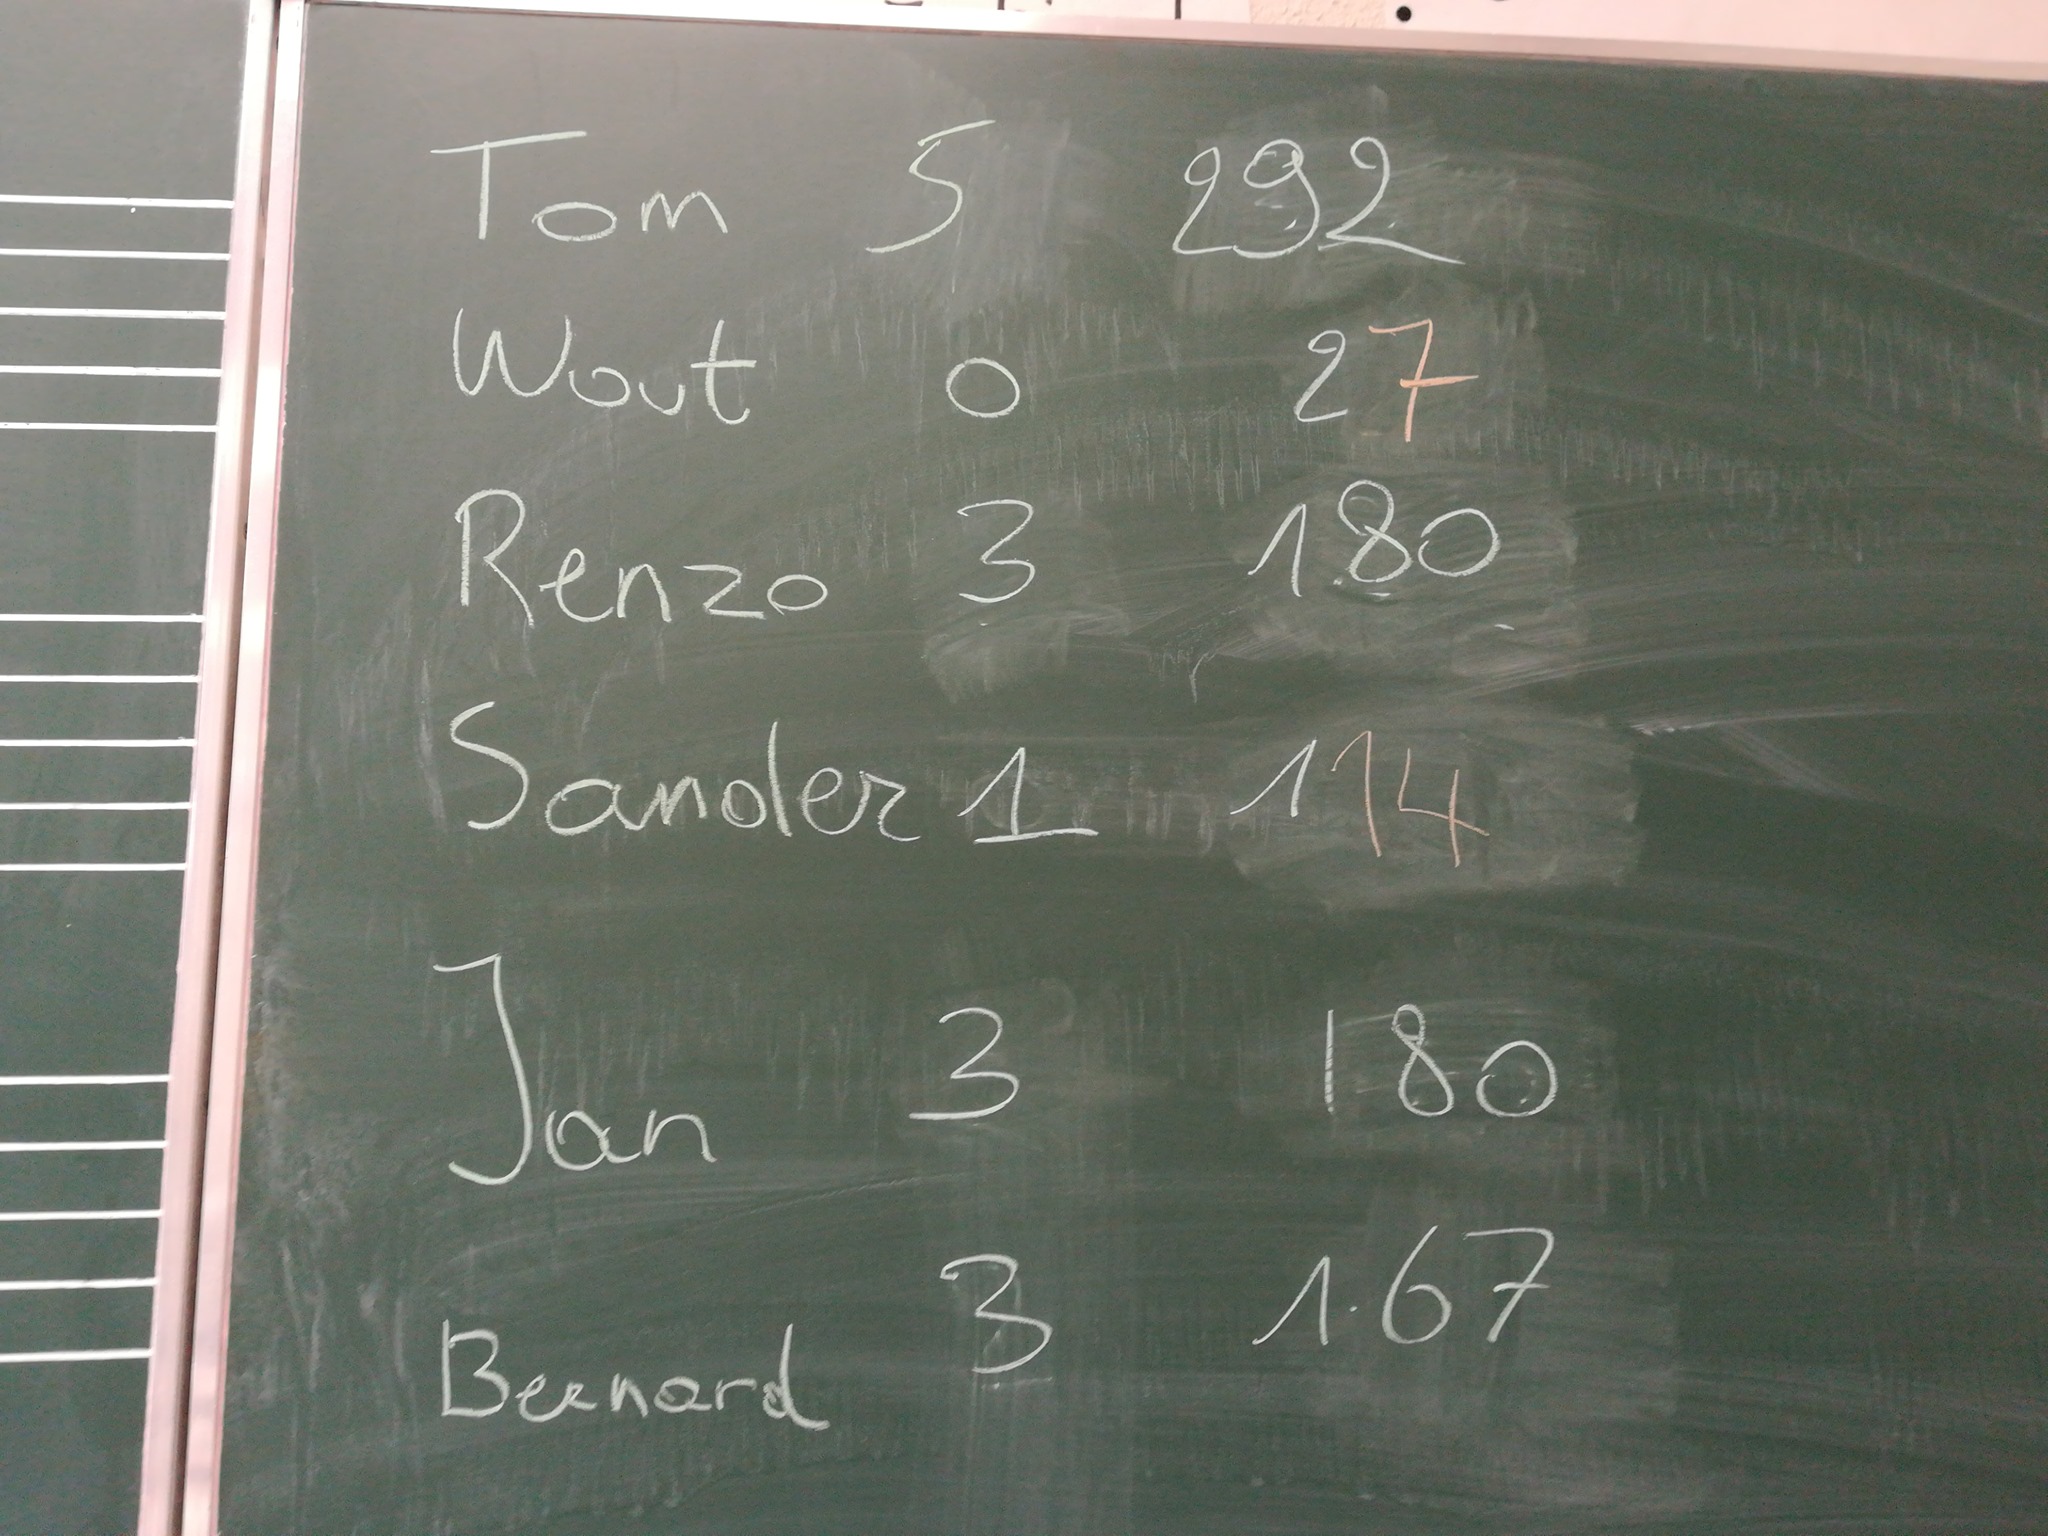 Tom 5 292
Wout 0 27
Renzo 3 180
Sander 1 114
Jan 3 180
Bernard 3 167